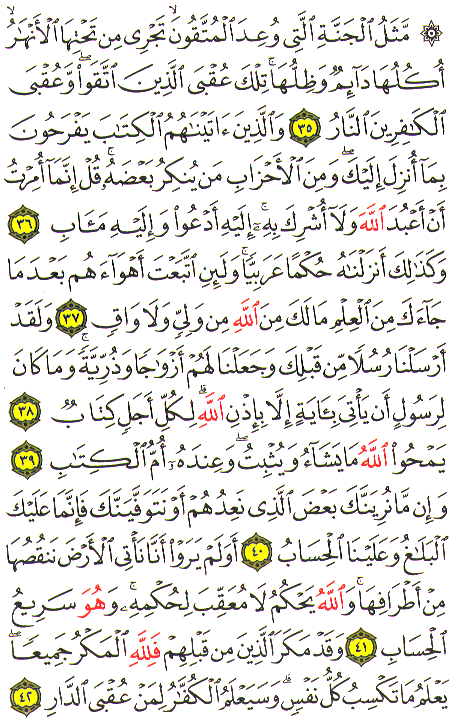 ۞ مَّثَلُ ٱلْجَنَّةِ ٱلَّتِى وُعِدَ ٱلْمُتَّقُونَ ۖ تَجْرِى مِن تَحْتِهَا ٱلْأَنْهَـٰرُ ۖ
أُكُلُهَا دَآئِمٌ وَظِلُّهَا ۚ تِلْكَ عُقْبَى ٱلَّذِينَ ٱتَّقَوا۟ ۖ وَّعُقْبَى
ٱلْكَـٰفِرِينَ ٱلنَّارُ ٣٥ وَٱلَّذِينَ ءَاتَيْنَـٰهُمُ ٱلْكِتَـٰبَ يَفْرَحُونَ
بِمَآ أُنزِلَ إِلَيْكَ ۖ وَمِنَ ٱلْأَحْزَابِ مَن يُنكِرُ بَعْضَهُۥ ۚ قُلْ إِنَّمَآ أُمِرْتُ
أَنْ أَعْبُدَ ٱللَّهَ وَلَآ أُشْرِكَ بِهِۦٓ ۚ إِلَيْهِ أَدْعُوا۟ وَإِلَيْهِ مَـَٔابِ ٣٦
وَكَذَٰلِكَ أَنزَلْنَـٰهُ حُكْمًا عَرَبِيًّا ۚ وَلَئِنِ ٱتَّبَعْتَ أَهْوَآءَهُم بَعْدَمَا
جَآءَكَ مِنَ ٱلْعِلْمِ مَا لَكَ مِنَ ٱللَّهِ مِن وَلِىٍّ وَلَا وَاقٍ ٣٧ وَلَقَدْ
أَرْسَلْنَا رُسُلًا مِّن قَبْلِكَ وَجَعَلْنَا لَهُمْ أَزْوَٰجًا وَذُرِّيَّةً ۚ وَمَا كَانَ
لِرَسُولٍ أَن يَأْتِىَ بِـَٔايَةٍ إِلَّا بِإِذْنِ ٱللَّهِ ۗ لِكُلِّ أَجَلٍ كِتَابٌ ٣٨
يَمْحُوا۟ ٱللَّهُ مَا يَشَآءُ وَيُثْبِتُ ۖ وَعِندَهُۥٓ أُمُّ ٱلْكِتَـٰبِ ٣٩
وَإِن مَّا نُرِيَنَّكَ بَعْضَ ٱلَّذِى نَعِدُهُمْ أَوْ نَتَوَفَّيَنَّكَ فَإِنَّمَا عَلَيْكَ
ٱلْبَلَـٰغُ وَعَلَيْنَا ٱلْحِسَابُ ٤٠ أَوَلَمْ يَرَوْا۟ أَنَّا نَأْتِى ٱلْأَرْضَ نَنقُصُهَا
مِنْ أَطْرَافِهَا ۚ وَٱللَّهُ يَحْكُمُ لَا مُعَقِّبَ لِحُكْمِهِۦ ۚ وَهُوَ سَرِيعُ
ٱلْحِسَابِ ٤١ وَقَدْ مَكَرَ ٱلَّذِينَ مِن قَبْلِهِمْ فَلِلَّهِ ٱلْمَكْرُ جَمِيعًا ۖ
يَعْلَمُ مَا تَكْسِبُ كُلُّ نَفْسٍ ۗ وَسَيَعْلَمُ ٱلْكُفَّـٰرُ لِمَنْ عُقْبَى ٱلدَّارِ ٤٢